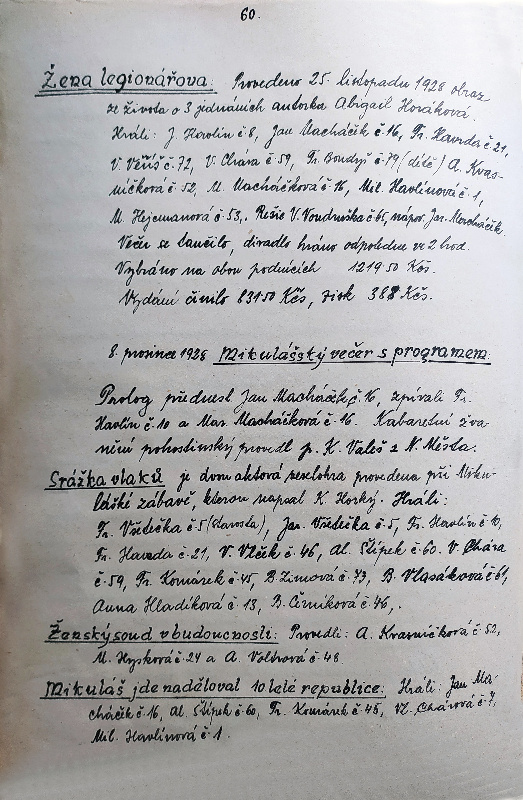 60.
Žena legionářova: Provedeno 25. listopadu 1928 obraz
ze života o 3 jednáních autorka Abigail Horáková.
Hráli: J. Havlín č 8, Jan Macháček č. 16, Fr. Havrda č. 21,
V. Veřiš č. 72, V. Chára č. 59, Fr. Bondyš č. 79 (dítě) A. Kras-
ničková č. 52, M. Macháčková č. 16, Mil. Havlínová č. 1,
M. Hejcmanová č. 53,. Režie V. Voudruška č. 61, nápov. Jar.
Večer se tančilo, divadlo hráno odpoledne ve 2 hod.
Vybráno na obou podnicích 1219 50 Kčs.
Vydání činilo 831 50 Kčs, zisk 388 Kčs.
8. prosince 1928 Mikulášský večer s programem:
Prolog přednesl Jan Macháček č. 16, zpívali Fr.
Havlín č. 10 a Mar. Macháčková č. 16. Kabaretní žva-
nění pohostinský provedl p. K. Valeš z N. Města.
Srážka vlaků je dvou aktová veselohra provedena při Miku-
lášké zábavě, kterou napsal K. Horký. Hráli:
Fr. Všetečka č. 5 (starosta), Jar. Všetečka č. 5, Fr. Havlín č. 10,
Fr. Havrda č. 21, V. Vlček č. 46, Al. Štípek č. 60. V. Chára
č. 59, Fr. Komárek č. 45, B. Zimová č. 73, B. Vlasáková č. 61,
Anna Hladíková č. 13, B. Černíková č. 46,.
Ženský soud v budoucnosti: Provedli: A. Krasničková č. 52,
M. Hyzková č. 24 a A. Voltrová č. 48.
Mikuláš jde naděloval 10 leté republice: Hráli: Jan Ma-
cháček č. 16, Al. Štípek č. 60, Fr. Komárek č. 45, Vl. Chárová č. 7,
Mil. Havlínová č. 1.